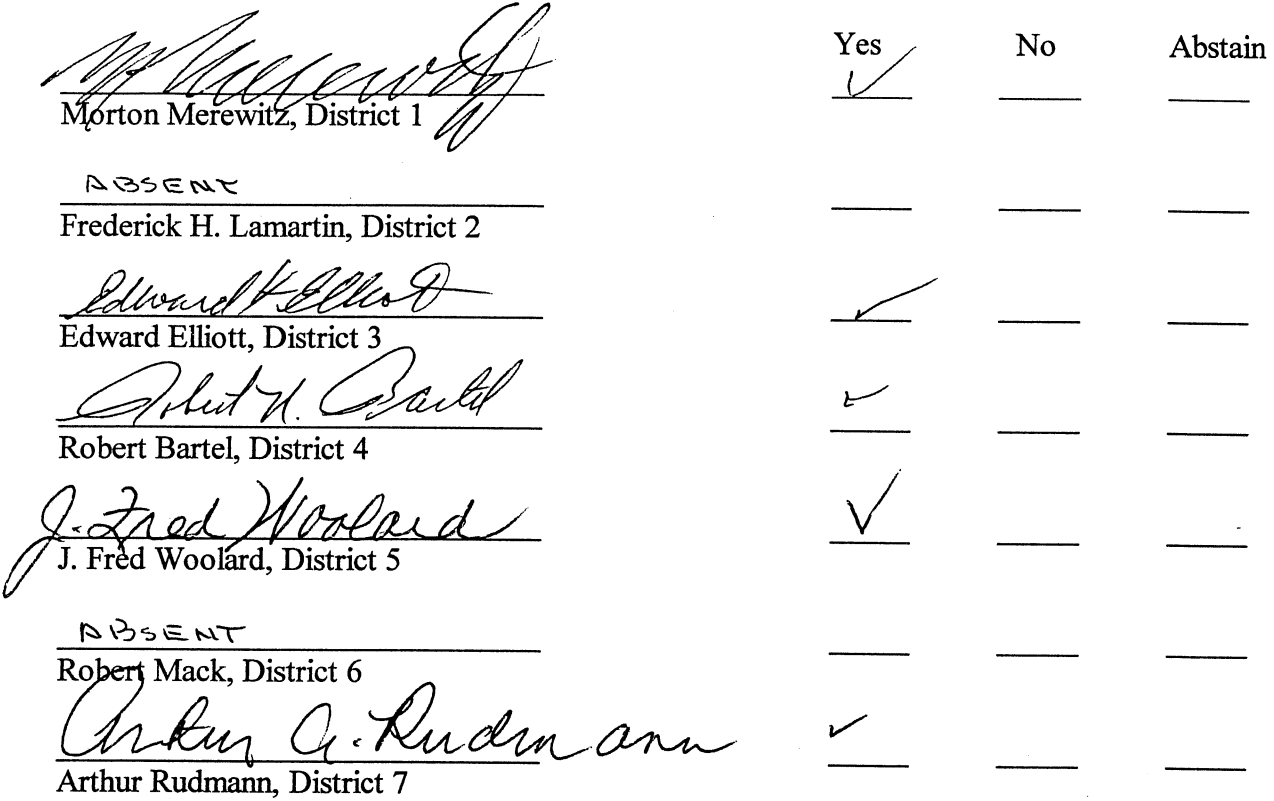 Yes No Abstain
Morton Merewitz, District 1
ABSENT
Frederick H. Lamartin, District 2
Edward H. Elliott
Edward Elliott, District 3
Robert N. Bartel
Robert Bartel, District 4
J. Fred Woolard
J. Fred Woolard, District 5
ABSENT
Robert Mack, District 6
Arthur A. Rudmann
Arthur Rudmann, District 7